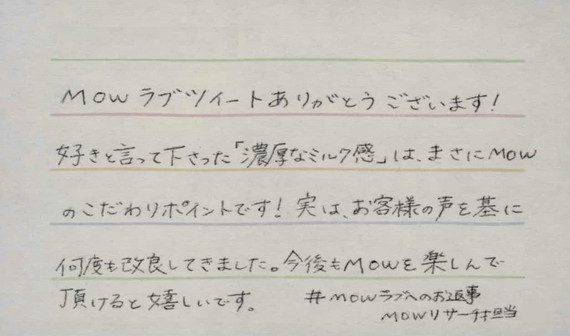 MOWラブツイートありがとうございます!
好きと言って下さった「濃厚なミルク感」は、まさにMOW
のこだわりポイントです! 実は、お客様の声を基に
何度も改良してきました。今後もMOWを楽しんで
頂けると嬉しいです。 #MOWラブへのお返事
MOWリサーチ担当